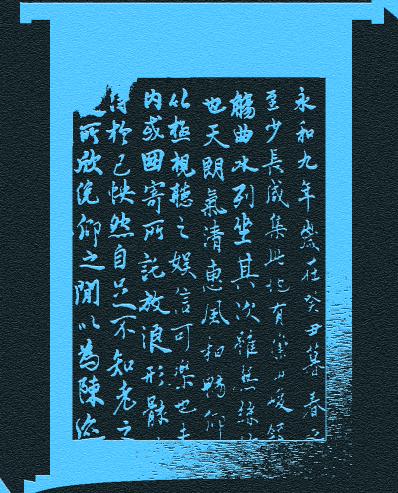 永和九年歲在癸丑暮春之
至少長咸集此地有崇山峻領
觴曲水列坐其次雖無絲
也天朗氣清惠風和暢仰
以極視聽之娛信可樂也夫
内或因寄所託放浪形骸
得於己快然自足不知老之
所欣俛仰之閒以為陳迹